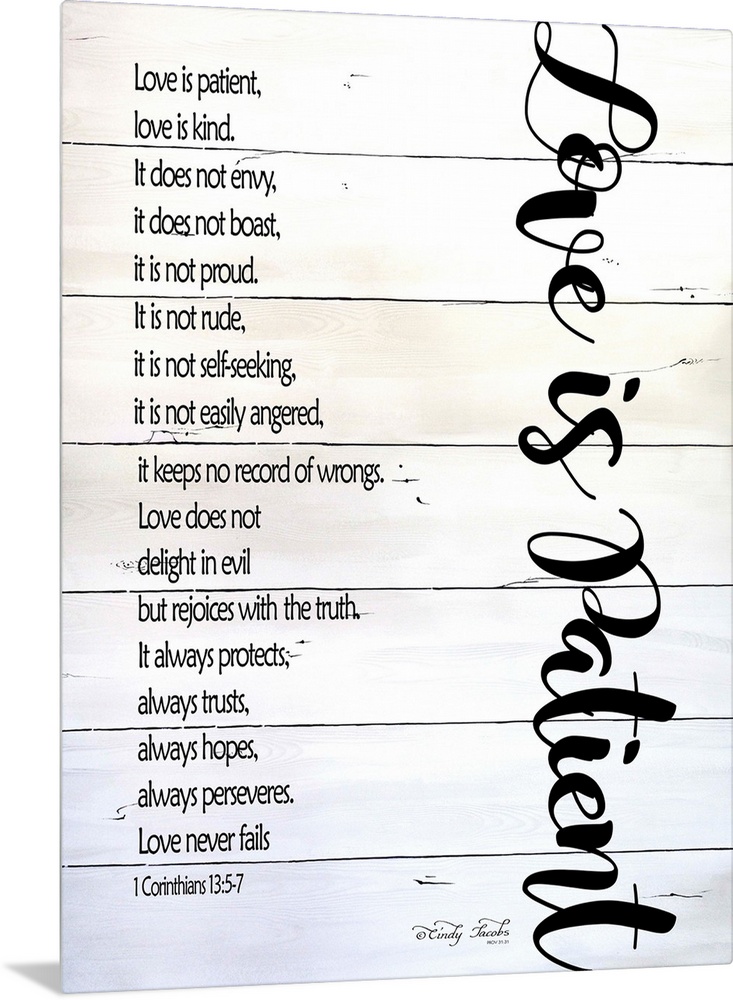 Love is patient,
love is kind.
It does not envy,
it does not boast,
it is not proud.
It is not rude,
it is not self-seeking,
it is not easily angered,
it keeps no record of wrongs.
Love does not
delight in evil
but rejoices with the truth.
It always protects,
always trusts,
always hopes,
always perseveres.
Love never fails
1 Corinthians 13:5-7
Love is Patient
© Cindy Jacobs
PROV 31:31